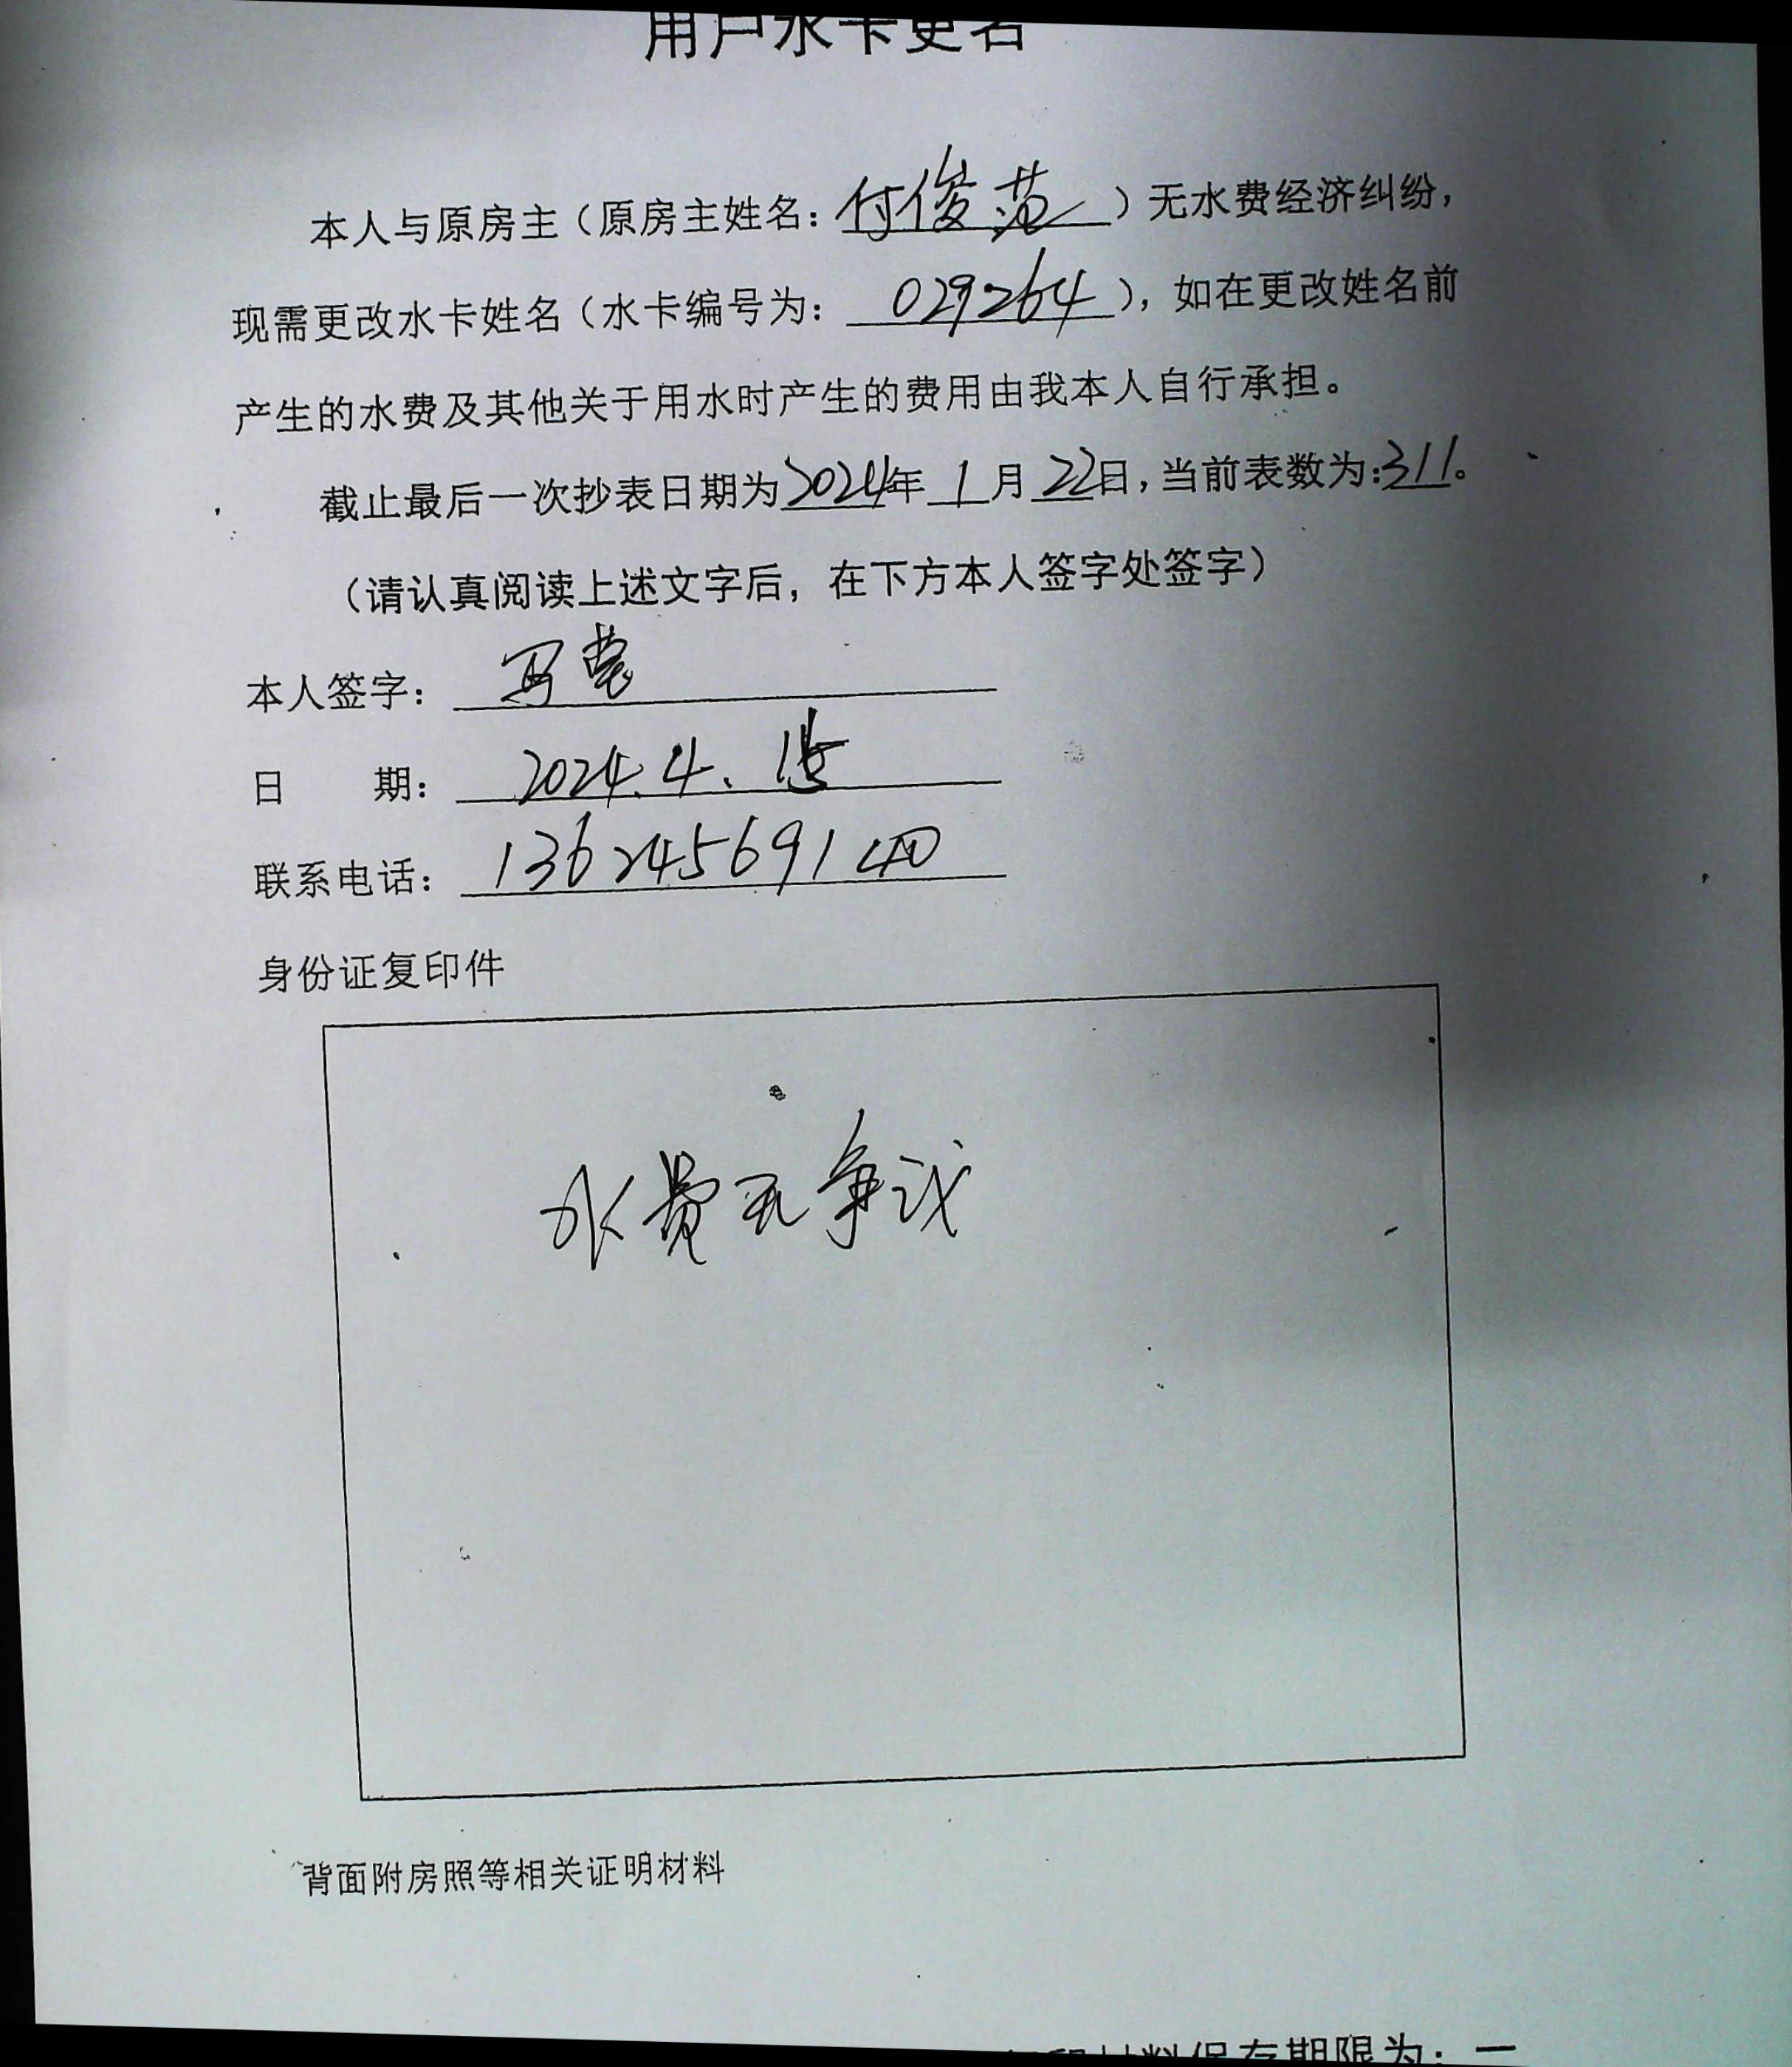 用户水卡更名
本人与原房主（原房主姓名：付俊范）无水费经济纠纷，
现需更改水卡姓名（水卡编号为：029264），如在更改姓名前
产生的水费及其他关于用水时产生的费用由我本人自行承担。
截止最后一次抄表日期为2024年1月22日，当前表数为：311。
（请认真阅读上述文字后，在下方本人签字处签字）
本人签字：
日 期：2024.4.15
联系电话：13624569140
身份证复印件
水费无争议
背面附房照等相关证明材料
材料保存期限为：一